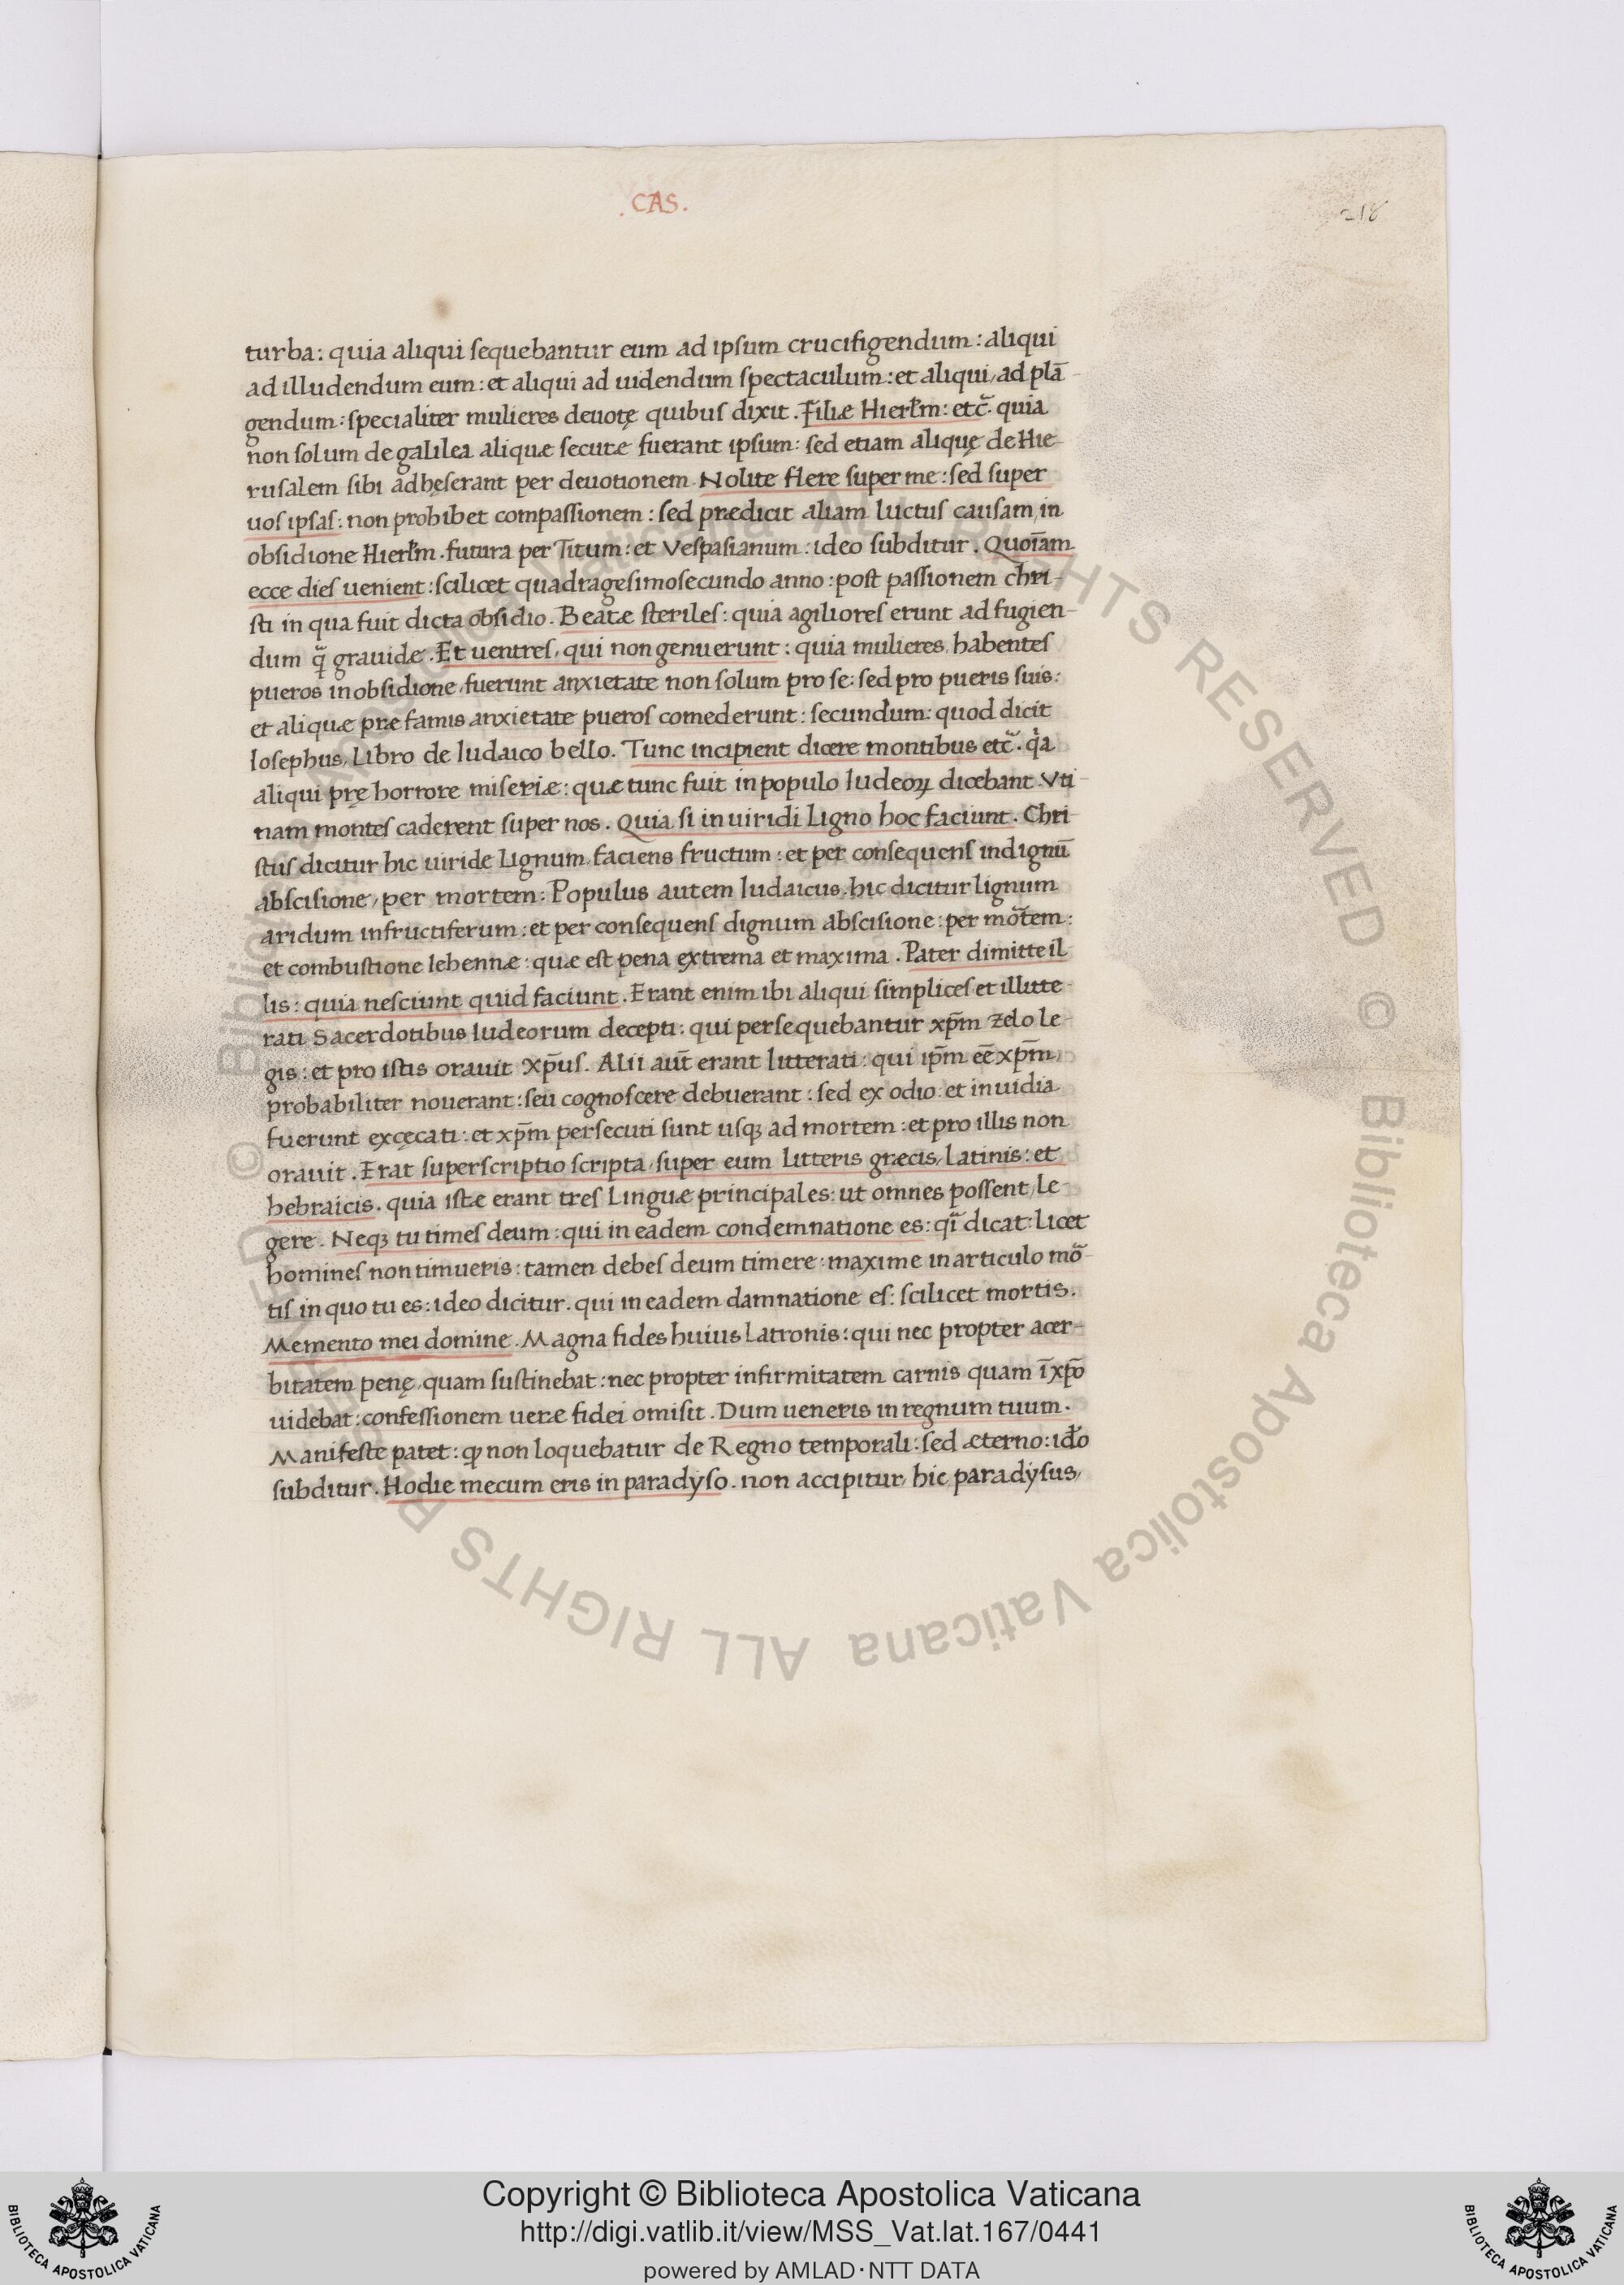 .CAS.
218
turba: quia aliqui sequebantur eum ad ipsum crucifigendum: aliqui
ad illudendum eum: et aliqui ad uidendum spectaculum: et aliqui, ad plā-
gendum: specialiter mulieres deuotę quibus dixit. Filiæ Hierl̄m: etc̄. quia
non solum de galilea aliquæ secutæ fuerant ipsum: sed etiam aliquę de Hie-
rusalem sibi adhęserant per deuotionem. Nolite flere super me: sed super
uos ipsas: non prohibet compassionem: sed prædicit aliam luctus causam, in
obsidione Hierl̄m. futura per Titum: et Vespasianum: ideo subditur. Quoīam
ecce dies uenient: scilicet quadragesimosecundo anno: post passionem chri-
sti in qua fuit dicta obsidio. Beatæ steriles: quia agiliores erunt ad fugien-
dum q̄ grauidæ. Et uentres, qui non genuerunt: quia mulieres, habentes
pueros in obsidione, fuerunt anxietate non solum pro se: sed pro pueris suis:
et aliquæ præ famis anxietate pueros comederunt: secundum: quod dicit
Iosephus, Libro de Iudaico bello. Tunc incipient dicere montibus etc̄. qͥa
aliqui prę horrore miseriæ: quæ tunc fuit in populo Iudeoꝝ dicebant. Vti-
nam montes caderent super nos. Quia si in uiridi Ligno hoc faciunt. Chri-
stus dicitur hic uiride Lignum, faciens fructum: et per consequens indignū
abscisione, per mortem: Populus autem Iudaicus, hic dicitur lignum
aridum infructiferum: et per consequens dignum abscisione: per mōtem:
et combustione Iehennæ: quæ est pena extrema et maxima. Pater dimitte il
lis: quia nesciunt quid faciunt. Erant enim ibi aliqui simplices et illitte-
rati Sacerdotibus Iudeorum decepti: qui persequebantur xp̄m zelo le-
gis: et pro istis orauit Xp̄us. Alii aut̄ erant litterati: qui ip̄m eē xp̄m,
probabiliter nouerant: seu cognoscere debuerant: sed ex odio: et inuidia
fuerunt excęcati: et xp̄m persecuti sunt usqꝫ ad mortem: et pro illis non
orauit. Erat superscriptio scripta, super eum Litteris græcis, Latinis: et
hebraicis. quia istæ erant tres Linguæ principales: ut omnes possent, le-
gere. Neqꝫ tu times deum: qui in eadem condemnatione es: qī dicat: Licet
homines non timueris: tamen debes deum timere: maxime in articulo mō-
tis in quo tu es: ideo dicitur. qui in eadem damnatione es: scilicet mortis.
Memento mei domine. Magna fides huius Latronis: qui nec propter acer-
bitatem penę, quam sustinebat: nec propter infirmitatem carnis quam ī xp̄o
uidebat: confessionem ueræ fidei omisit. Dum ueneris in regnum tuum.
Manifeste patet: ꝙ non loquebatur de Regno temporali: sed æterno: id̄o
subditur. Hodie mecum eris in paradyso. non accipitur, hic, paradysus,
© Biblioteca Apostolica Vaticana ALL RIGHTS RESERVED © Biblioteca Apostolica Vaticana ALL RIGHTS RESERVED
Copyright © Biblioteca Apostolica Vaticana
http://digi.vatlib.it/view/MSS_Vat.lat.167/0441
powered by AMLAD·NTT DATA
BIBLIOTECA APOSTOLICA VATICANA
BIBLIOTECA APOSTOLICA VATICANA